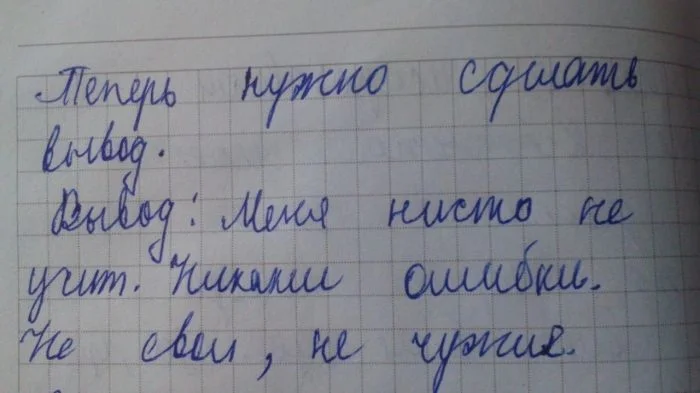 Теперь нужно сделать
вывод.
Вывод: Меня нисто не
учит. Никакии ошибки.
Не свои, не чужие.